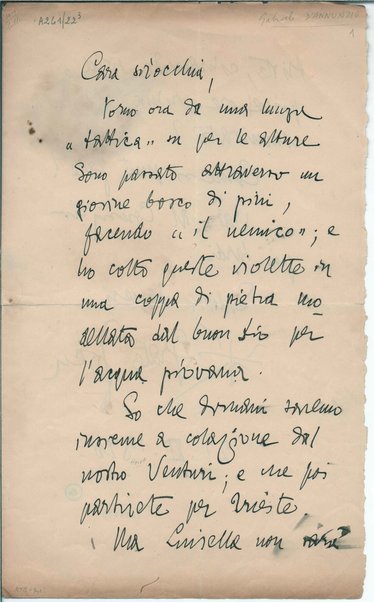 A261/22³
Gabriele D'ANNUNZIO
1
Cara sirocchia,
torno ora da una lunga
"tattica" su per le alture
Sono passato attraverso un
giovine bosco di pini,
facendo "il nemico"; e
ho colto queste violette in
una coppa di pietra mo
dellata dal buon Dio per
l'acqua piovana.
So che domani saremo
insieme a colazione dal
nostro Venturi; e che poi
partirete per Trieste.
Ma Luisella non